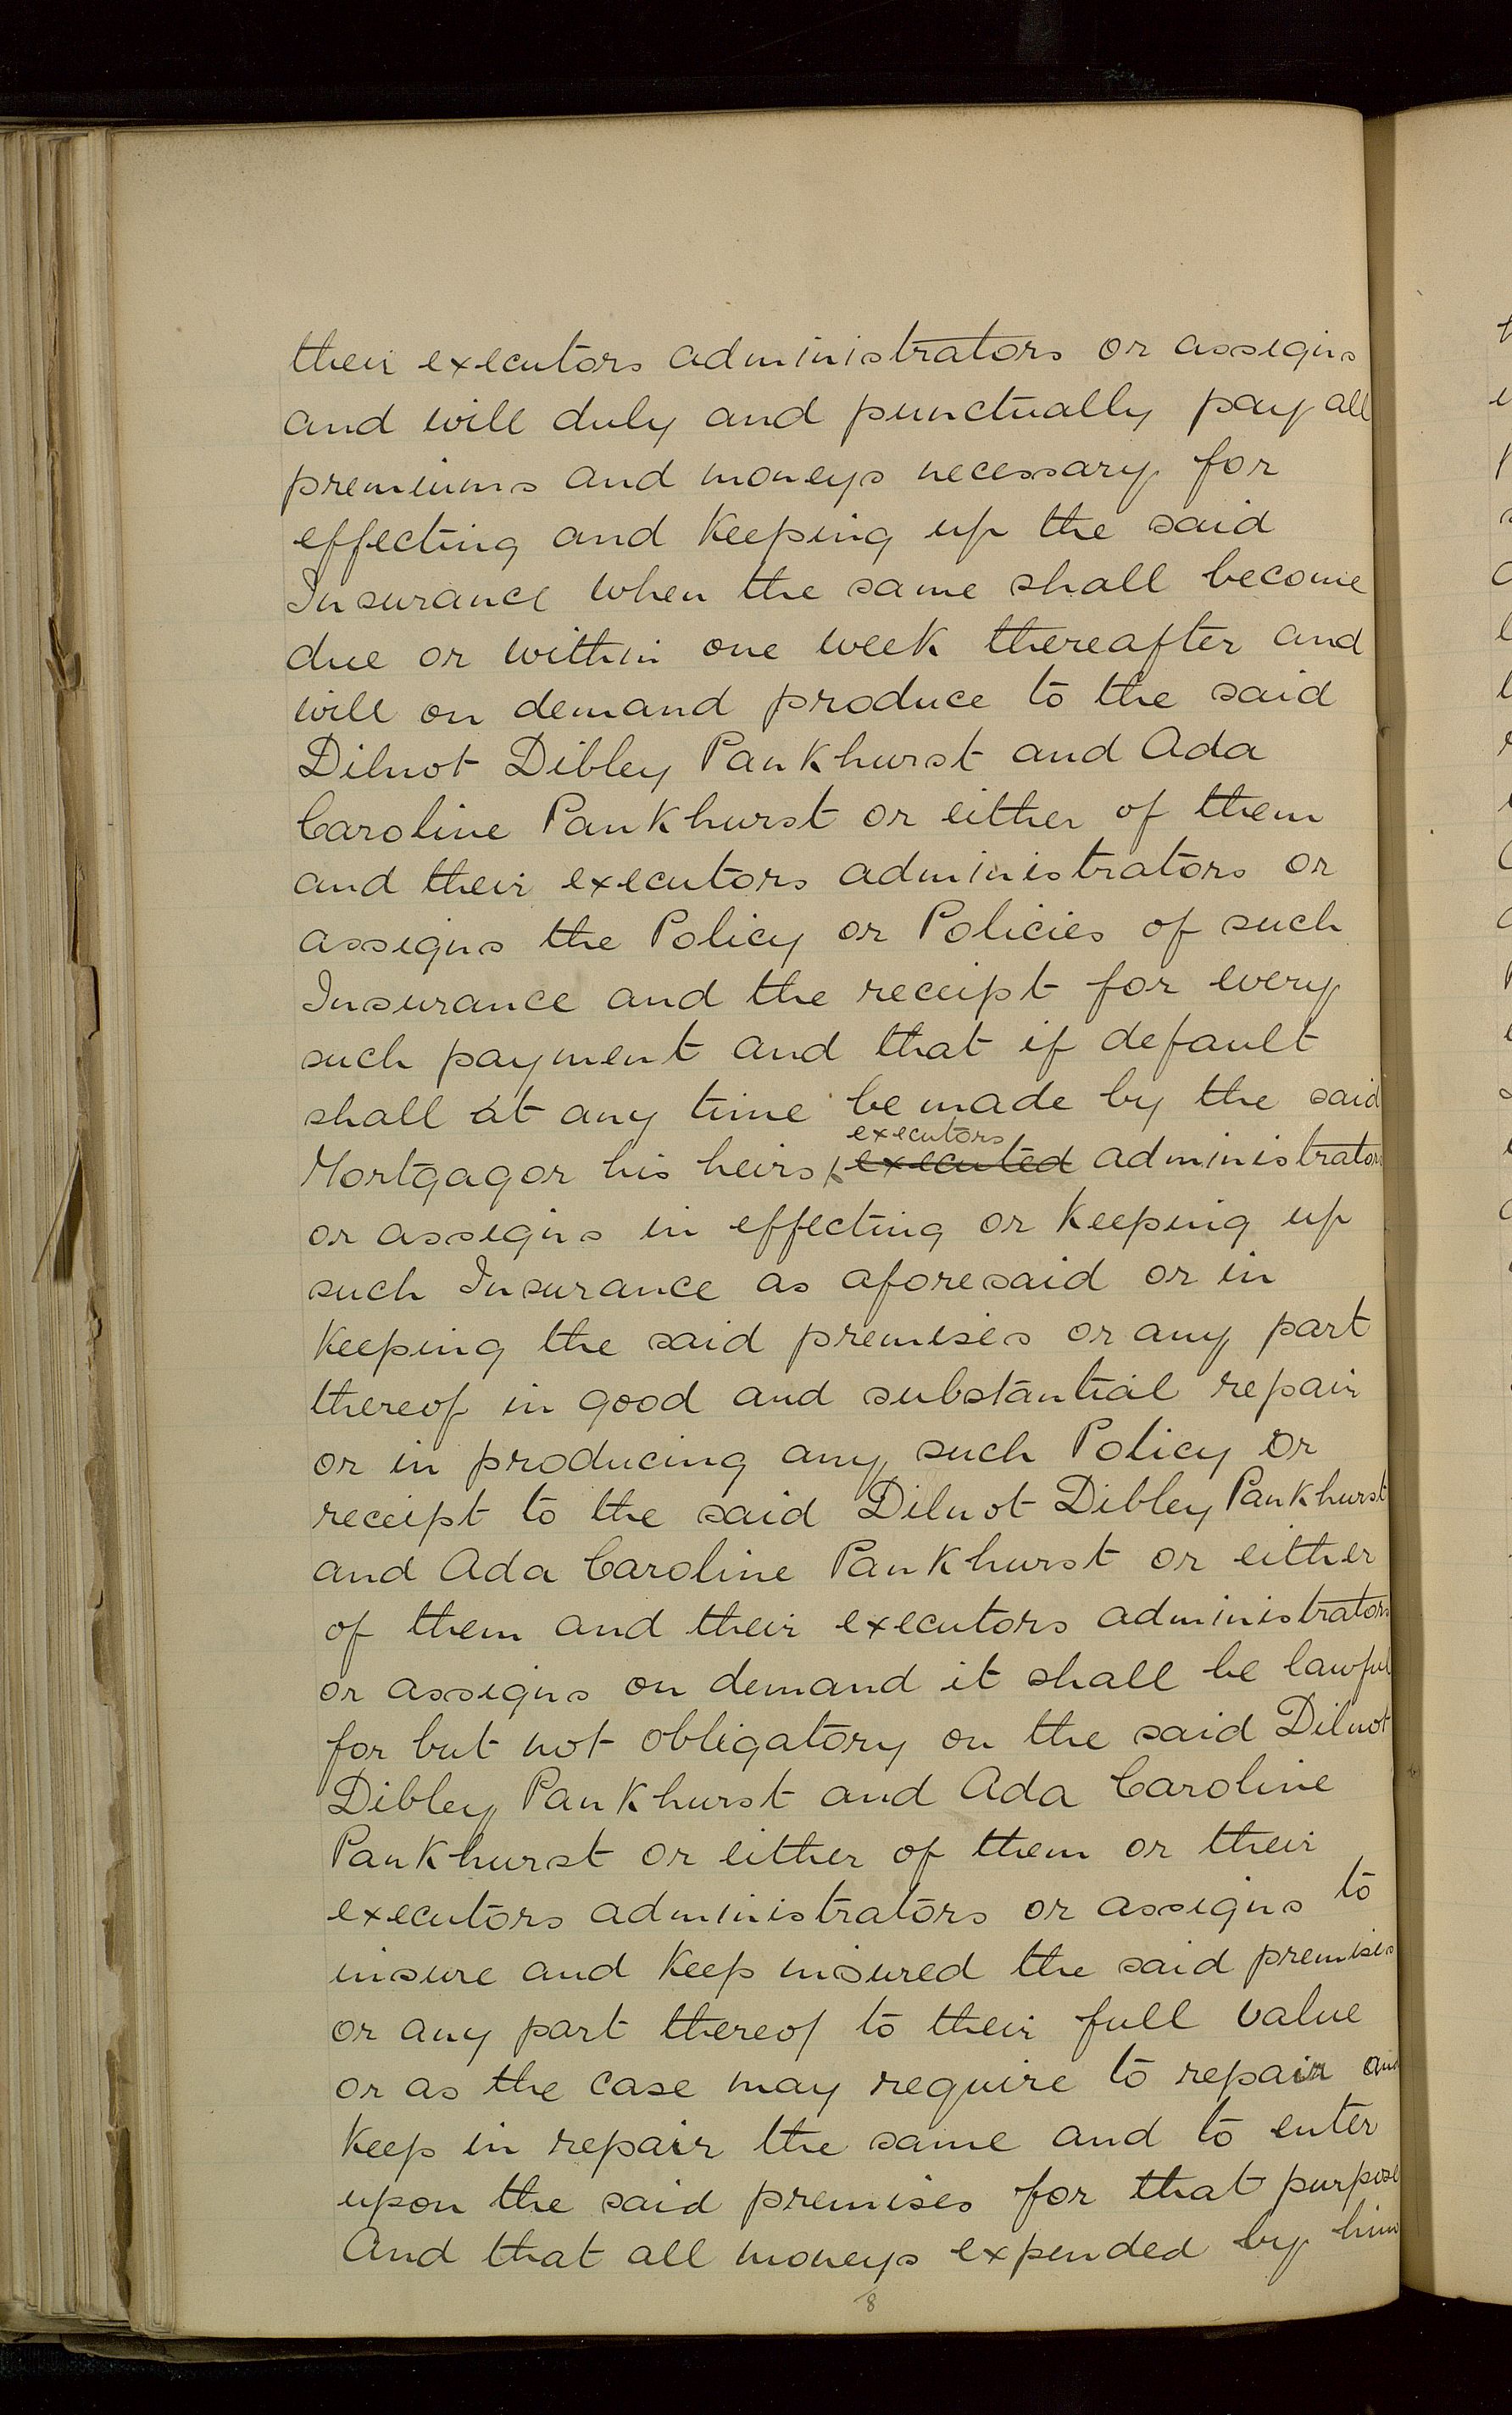 their executors administrators or assigns
and will duly and punctually pay all
premiums and moneys necessary for
effecting and keeping up the said
Insurance when the same shall become
due or within one week thereafter and
will on demand produce to the said
Dilnot Dibley Pankhurst and Ada
Caroline Pankhurst or either of them
and their executors administrators or
assigns the Policy or Policies of such
Insurance and the receipt for every
such payment and that if default
shall at any time be made by the said
executors
Mortgagor his heirs executed administrators
or assigns in effecting or keeping up
such Insurance as aforesaid or in
keeping the said premises or any part
thereof in good and substantial repair
or in producing any such Policy or
receipt to the said Dilnot Dibley Pankhurst
and Ada Caroline Pankhurst or either
of them and their executors administrators
or assigns on demand it shall be lawful
for but not obligatory on the said Dilnot
Dibley Pankhurst and Ada Caroline
Pankhurst or either of them or their
executors administrators or assigns to
insure and keep insured the said premises
or any part thereof to their full value
or as the case may require to repair and
keep in repair the same and to enter
upon the said premises for that purpose
And that all moneys expended by him
8